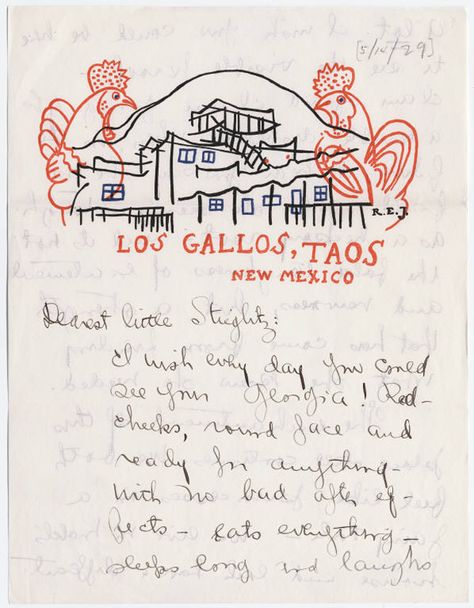 [5/14/29]
R.E.J.
LOS GALLOS, TAOS
NEW MEXICO
Dearest little Stieglitz:
I wish every day you could
see your Georgia! Red-
cheeks, round face and
ready for anything—
with no bad after ef-
fects— eats everything—
sleeps long and laughs